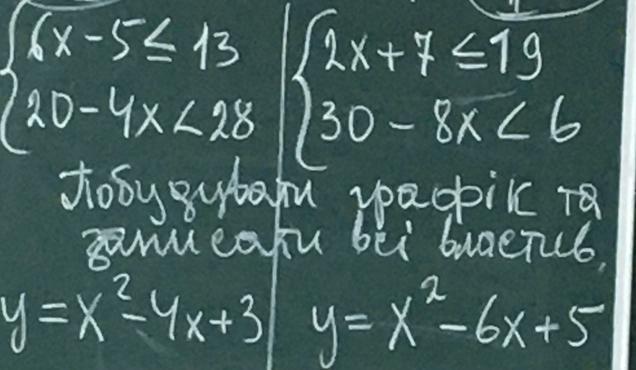 6x-5≤13 | 2x+7≤19
20-4x<28 | 30-8x<6
Побудувати графік та
записати всі властив.
y=x²-4x+3 | y=x²-6x+5